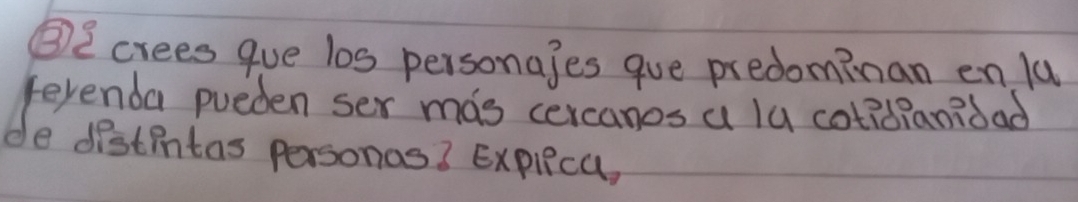 ③¿ crees que los personajes que predominan en la
leyenda pueden ser más cercanos a la cotidianidad
de distintas personas? Explica,